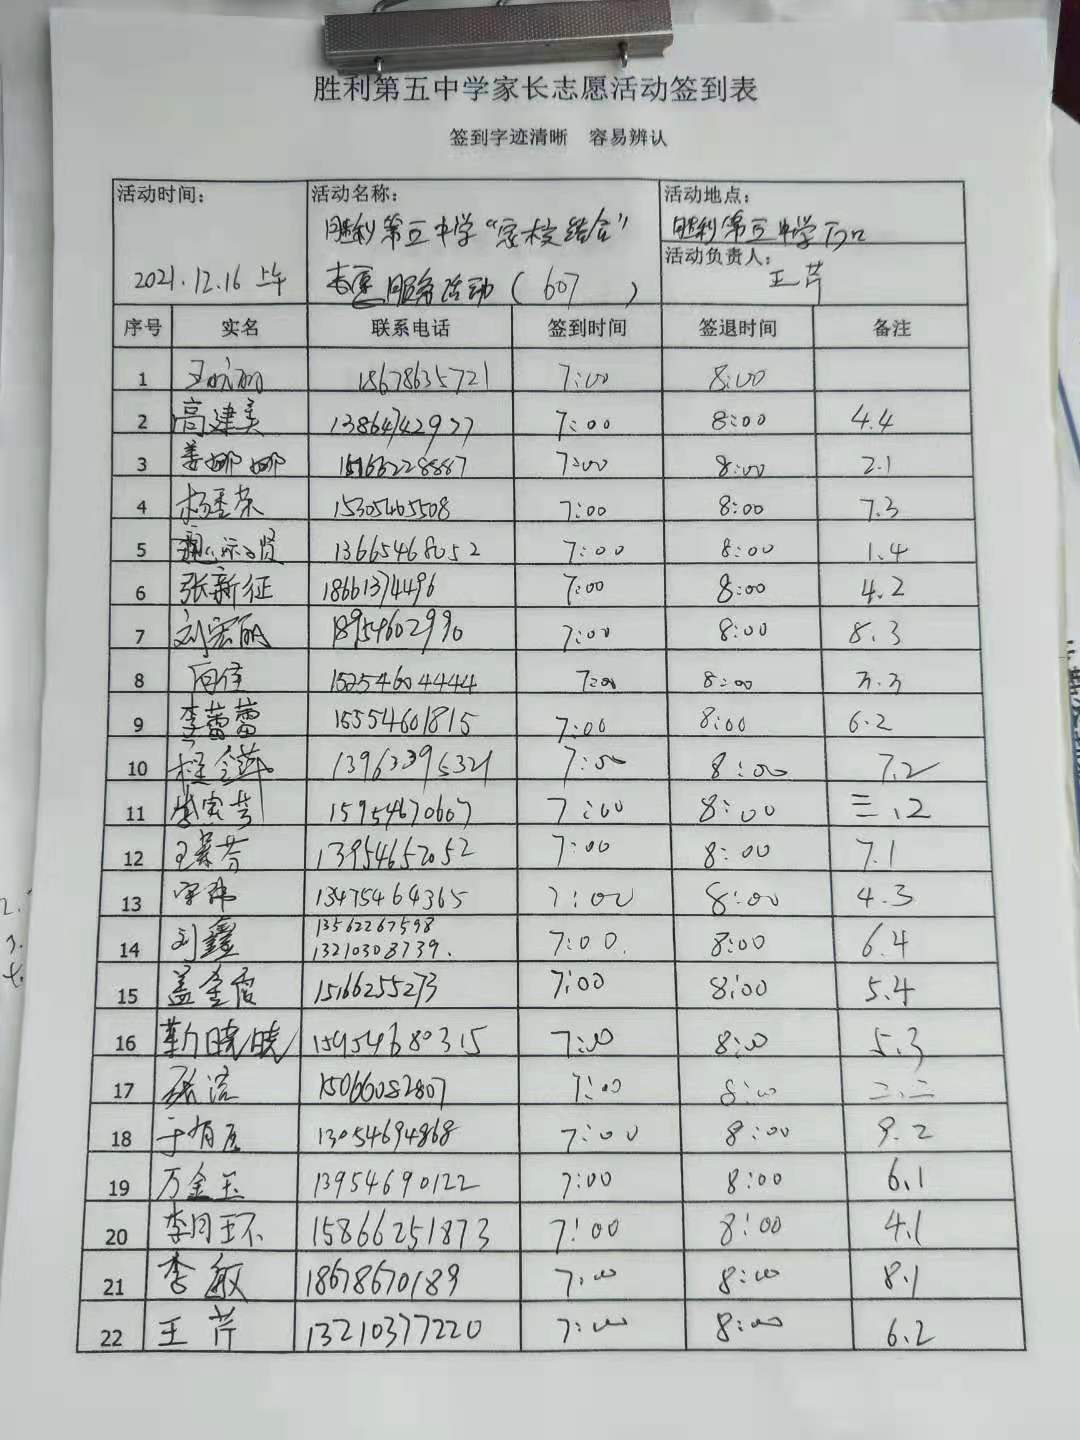 胜利第五中学家长志愿活动签到表
签到字迹清晰 容易辨认
活动时间： 活动名称： 活动地点：
胜利第五中学“家校结合” 胜利第五中学门口
活动负责人：
2021.12.16 上午 志愿服务活动（607） 王芹
序号 实名 联系电话 签到时间 签退时间 备注
1 18678635721 7:00 8:00
2 高建美 13864742977 7:00 8:00 4.4
3 姜娜娜 15163228887 7:00 8:00 2.1
4 杨季荣 15305465508 7:00 8:00 7.3
5 13665468052 7:00 8:00 1.4
6 张新征 18661374496 7:00 8:00 4.2
7 刘宏丽 18954602990 7:00 8:00 8.3
8 15254604444 7:00 8:00 3.3
9 李蕾蕾 15554601815 7:00 8:00 6.2
10 13963395321 7:00 8:00 7.2
11 15954670607 7:00 8:00 三.2
12 13954652052 7:00 8:00 7.1
13 宋玮 13475464365 7:00 8:00 4.3
14 刘鑫 13562267598 13210308739. 7:00. 8:00 6.4
15 盖金霞 15166255273 7:00 8:00 5.4
16 靳晓晓 15954680315 7:00 8:00 5.3
17 15066082807 7:00 8:00 二.二
18 13054694868 7:00 8:00 9.2
19 万金玉 13954690122 7:00 8:00 6.1
20 李月环 15866251873 7:00 8:00 4.1
21 李敏 18678670189 7:00 8:00 8.1
22 王芹 13210377220 7:00 8:00 6.2